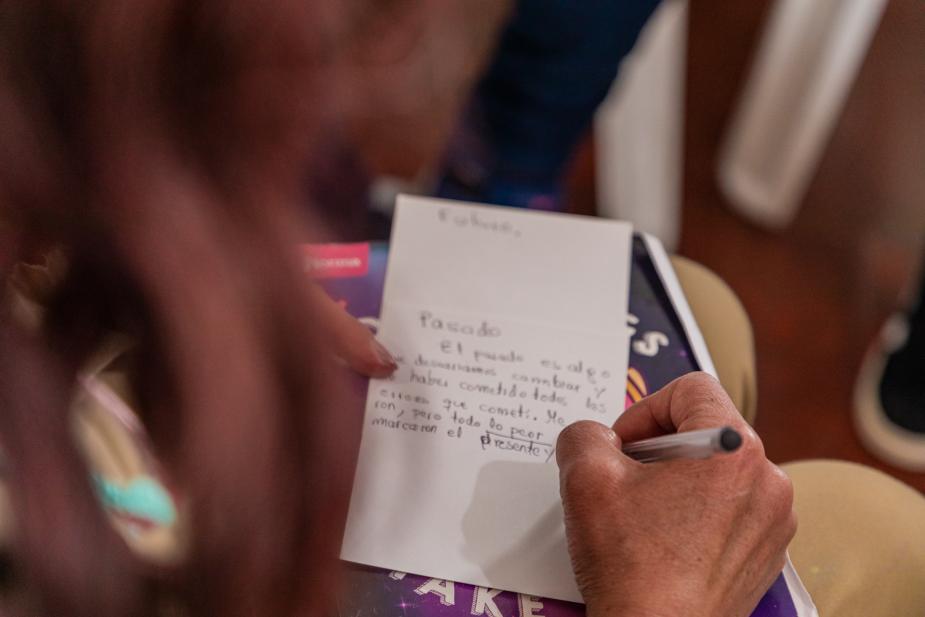 Futuro.
Pasado
El pasado es algo
que desearíamos cambiar y
haber cometido todos los
errores que cometí. Me
ron, pero todo lo peor
marcaron el presente y
TAKE